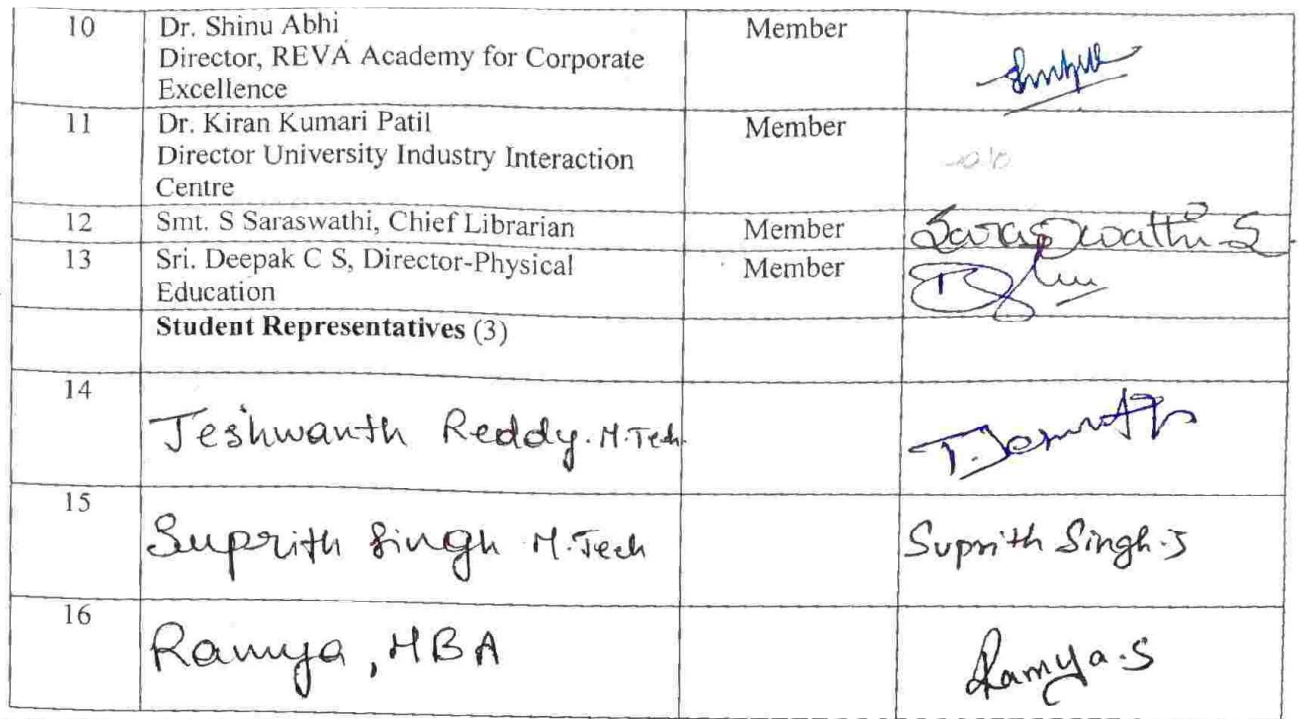 10 Dr. Shinu Abhi Member
Director, REVA Academy for Corporate
Excellence
11 Dr. Kiran Kumari Patil Member
Director University Industry Interaction
Centre
12 Smt. S Saraswathi, Chief Librarian Member Saraswathi S
13 Sri. Deepak C S, Director-Physical Member
Education
Student Representatives (3)
14
Jeshwanth Reddy. M.Tech.
15
Suprith Singh M.Tech Suprith Singh.J
16
Ramya, MBA Ramya.S